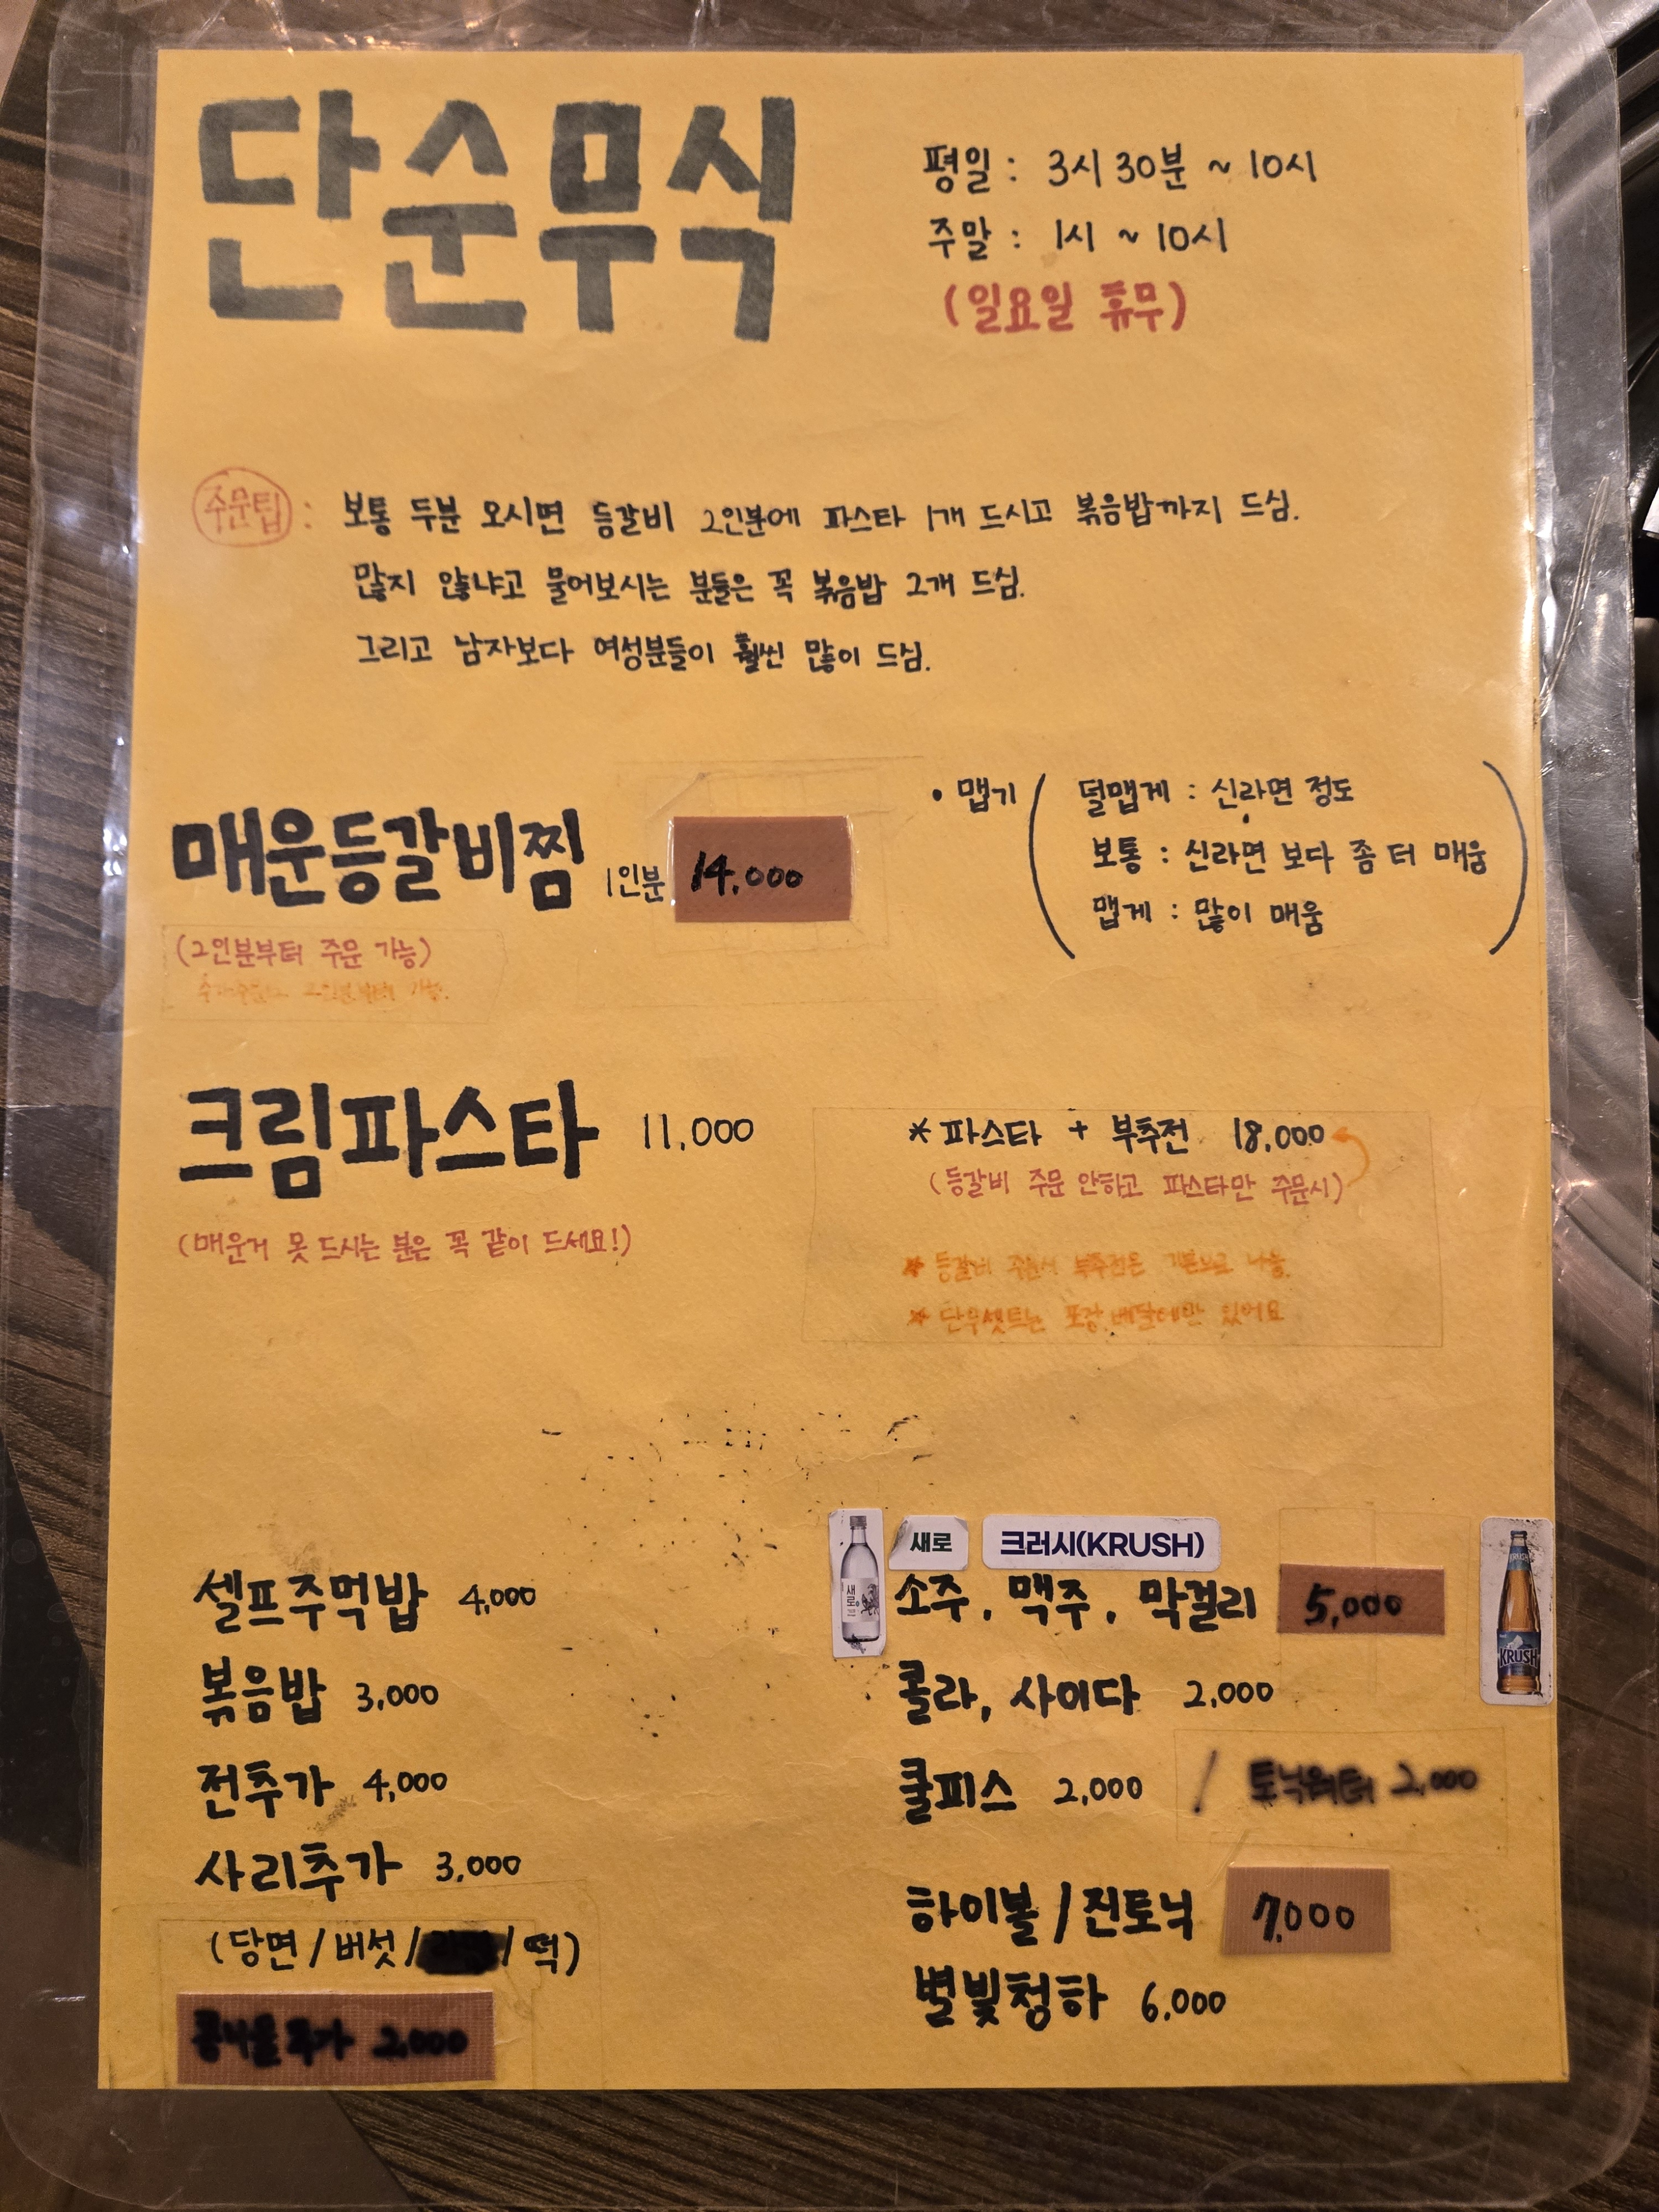 단순무식
평일 : 3시 30분 ~ 10시
주말 : 1시 ~ 10시
(일요일 휴무)
주문팁 : 보통 두분 오시면 등갈비 2인분에 파스타 1개 드시고 볶음밥까지 드심.
많지 않냐고 물어보시는 분들은 꼭 볶음밥 2개 드심.
그리고 남자보다 여성분들이 훨씬 많이 드심.
매운등갈비찜 1인분 14,000
(2인분부터 주문 가능)
추가주문도 2인분부터 가능.
• 맵기
덜맵게 : 신라면 정도
보통 : 신라면 보다 좀 터 매움
맵게 : 많이 매움
크림파스타 11,000
(매운거 못 드시는 분은 꼭 같이 드세요!)
* 파스타 + 부추전 18,000
(등갈비 주문 안하고 파스타만 주문시)
* 등갈비 주문시 부추전은 기본으로 나옴.
* 단무셋트는 포장, 배달에만 있어요
셀프주먹밥 4,000
볶음밥 3,000
전추가 4,000
사리추가 3,000
(당면 / 버섯 / / 떡)
콩나물 추가 2,000
새로
크러시(KRUSH)
새로
소주, 맥주, 막걸리 5,000
KRUSH
KRUSH
콜라, 사이다 2,000
쿨피스 2,000 / 토닉워터 2,000
하이볼 / 진토닉 7,000
별빛청하 6,000